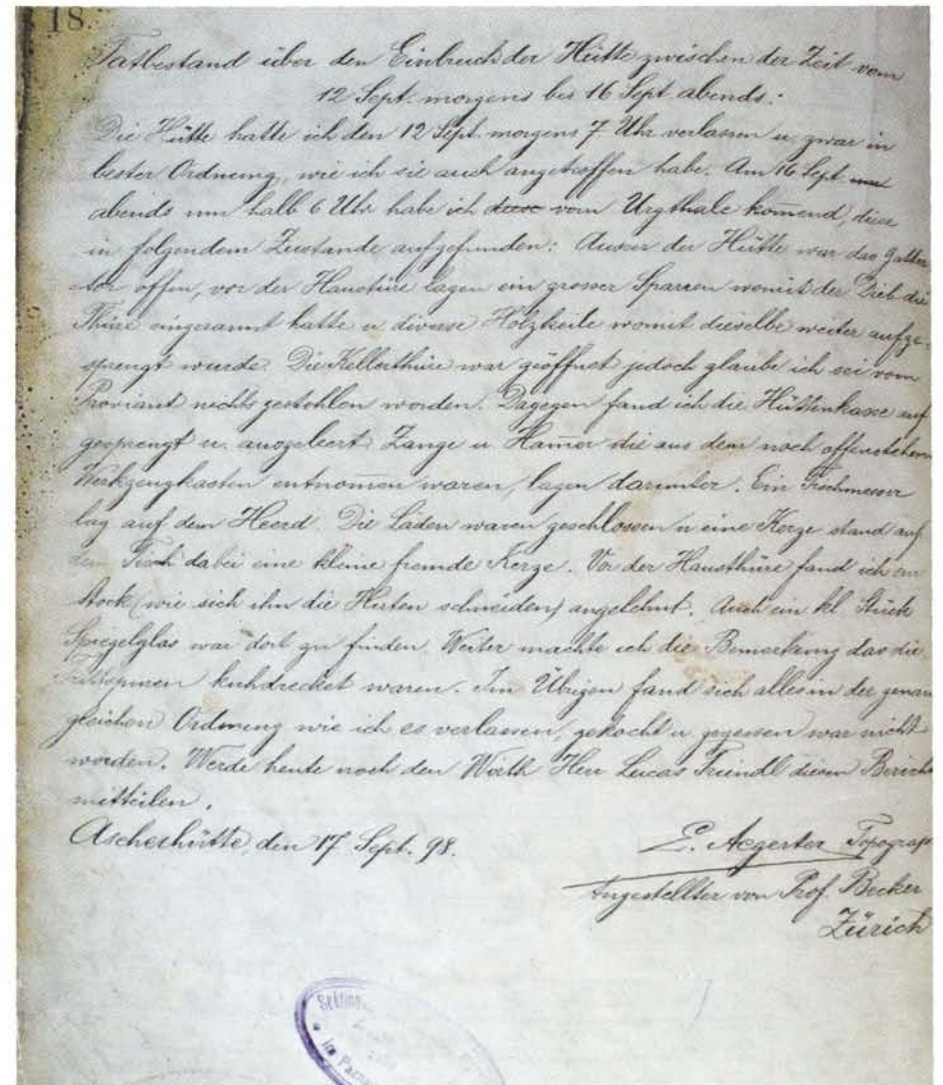 18.
Tatbestand über den Einbruch der Hütte zwischen der Zeit vom
12 Sept. morgens bis 16 Sept. abends.
Die Hütte hatte ich den 12 Sept. morgens 7 Uhr verlassen u. zwar in
bester Ordnung, wie ich sie auch angetroffen habe. Am 16 Sept um
abends um halb 6 Uhr habe ich diese vom Urgthale kom̄end, diese
in folgendem Zustande aufgefunden: Ausser der Hütte war das Gatter
tor offen, vor der Haustüre lagen ein grosser Sparren womit der Dieb die
Thüre eingerannt hatte u. diverse Holzkeile womit dieselbe weiter aufge-
sprengt wurde. Die Kellerthüre war geöffnet jedoch glaube ich sei vom
Proviant nichts gestohlen worden. Dagegen fand ich die Hüttenkasse auf
gesprengt u. ausgeleert. Zange u. Ham̄er die aus dem noch offenstehen
Werkzeugkasten entnom̄en waren, lagen darunter. Ein Tischmesser
lag auf dem Heerd. Die Läden waren geschlossen u eine Kerze stand auf
dem Tisch dabei eine kleine fremde Kerze. Vor der Hausthüre fand ich ein
Stock (wie sich ihn die Hirten schneiden) angelehnt. Auch ein kl. Stück
Spiegelglas war dort zu finden. Weiter machte ich die Bemerkung das die
kuhdrecket waren. Im Übrigen fand sich alles in der genau
gleichen Ordnung wie ich es verlassen, gekocht u. gegessen war nicht
worden. Werde heute noch den Wirth Herr Lucas Treindl diesen Bericht
mitteilen.
Ascherhütte, den 17 Sept. 98.
L. Aegerter Topograf
Angestellter von Prof. Becker
Zürich
Sektion
im